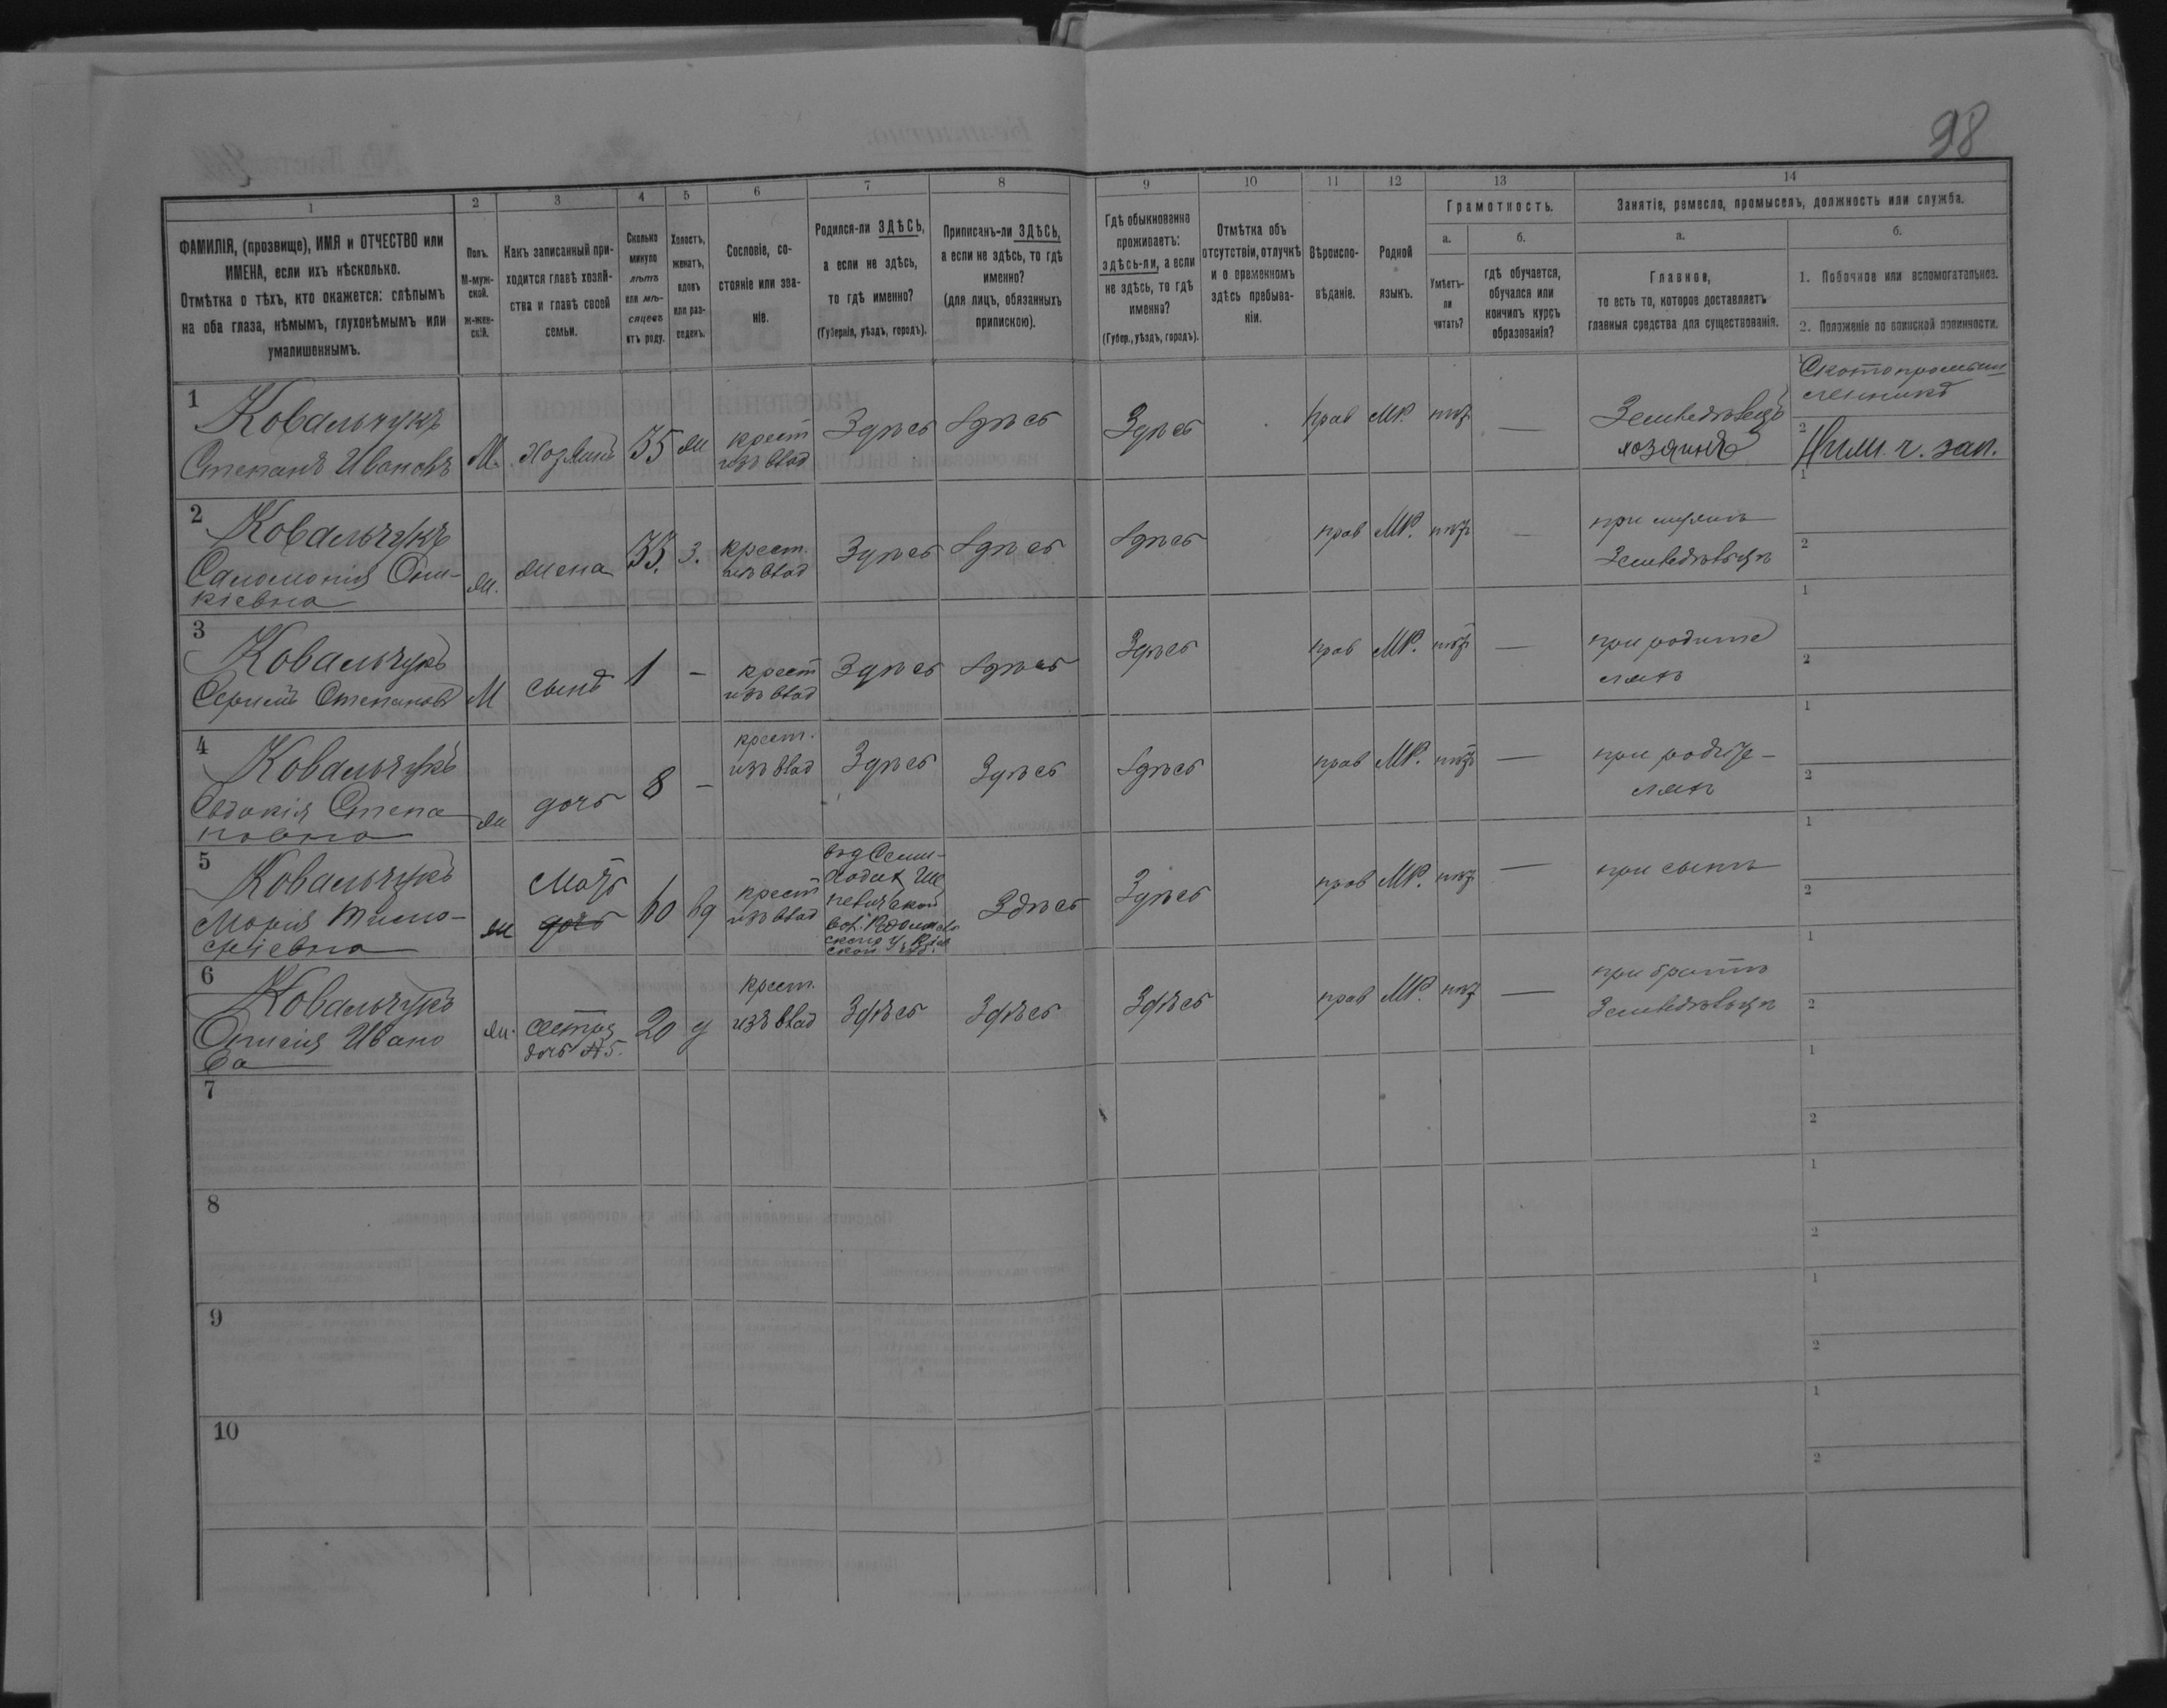 98
1
2
3
4
5
6
7
8
9
10
11
12
13
14
ФАМИЛІЯ, (прозвище), ИМЯ и ОТЧЕСТВО или
ИМЕНА, если ихъ нѣсколько.
Отмѣтка о тѣхъ, кто окажется: слѣпымъ
на оба глаза, нѣмымъ, глухонѣмымъ или
умалишеннымъ.
Полъ.
М-муж-
ской.
Ж-жен-
скій.
Какъ записанный при-
ходится главѣ хозяй-
ства и главѣ своей
семьи.
Сколько
минуло
лѣтъ
или мѣ-
сяцевъ
отъ роду.
Холостъ,
женатъ,
вдовъ
или раз-
веденъ.
Сословіе, со-
стояніе или зва-
ніе.
Родился-ли ЗДѢСЬ,
а если не здѣсь,
то гдѣ именно?
(Губернія, уѣздъ, городъ).
Приписанъ-ли ЗДѢСЬ,
а если не здѣсь, то гдѣ
именно?
(для лицъ, обязанныхъ
припискою).
Гдѣ обыкновенно
проживаетъ:
здѣсь-ли, а если
не здѣсь, то гдѣ
именно?
(Губер., уѣздъ, городъ).
Отмѣтка объ
отсутствіи, отлучкѣ
и о временномъ
здѣсь пребыва-
ніи.
Вѣроиспо-
вѣданіе.
Родной
языкъ.
Грамотность.
а.
Умѣетъ-
ли
читать?
б.
гдѣ обучается,
обучался или
кончилъ курсъ
образованія?
Занятіе, ремесло, промыселъ, должность или служба.
а.
Главное,
то есть то, которое доставляетъ
главныя средства для существованія.
б.
1. Побочное или вспомогательное.
2. Положеніе по воинской повинности.
1 Ковальчукъ
Степанъ Ивановъ
М. Хозяинъ 35 ж крест
изъ влад Здѣсь Здѣсь Здѣсь прав МР. нѣт — Земледѣлецъ
хозяинъ
1 Скотопромыш
ленникъ
2 Ниж. ч. зап.
2 Ковальчукъ
Саломонія Они-
кіевна
ж. жена 33. з. крест.
изъ влад Здѣсь Здѣсь Здѣсь прав МР. нѣт — при мужѣ
Земледѣльцѣ
1
2
3 Ковальчукъ
Сергій Степановъ
М сынъ 1 - крест
изъ влад Здѣсь Здѣсь Здѣсь прав МР. нѣт — при родите
ляхъ
1
2
4 Ковальчукъ
Евдокія Степа
новна
ж дочь 8 - крест.
изъ влад Здѣсь Здѣсь Здѣсь прав МР. нѣт — при родите-
ляхъ
1
2
5 Ковальчукъ
Марія Тимо-
фіевна
ж Мать
дочь
60 вд крест
изъ влад
Здѣсь Здѣсь прав МР. нѣт — при сынѣ
1
2
6 Ковальчукъ
Ивано
ва
ж. сестра
дочь №5.
20 д крест.
изъ влад Здѣсь Здѣсь Здѣсь прав МР. нѣт — при братѣ
Земледѣльцѣ
1
2
7
1
2
8
1
2
9
1
2
10
1
2